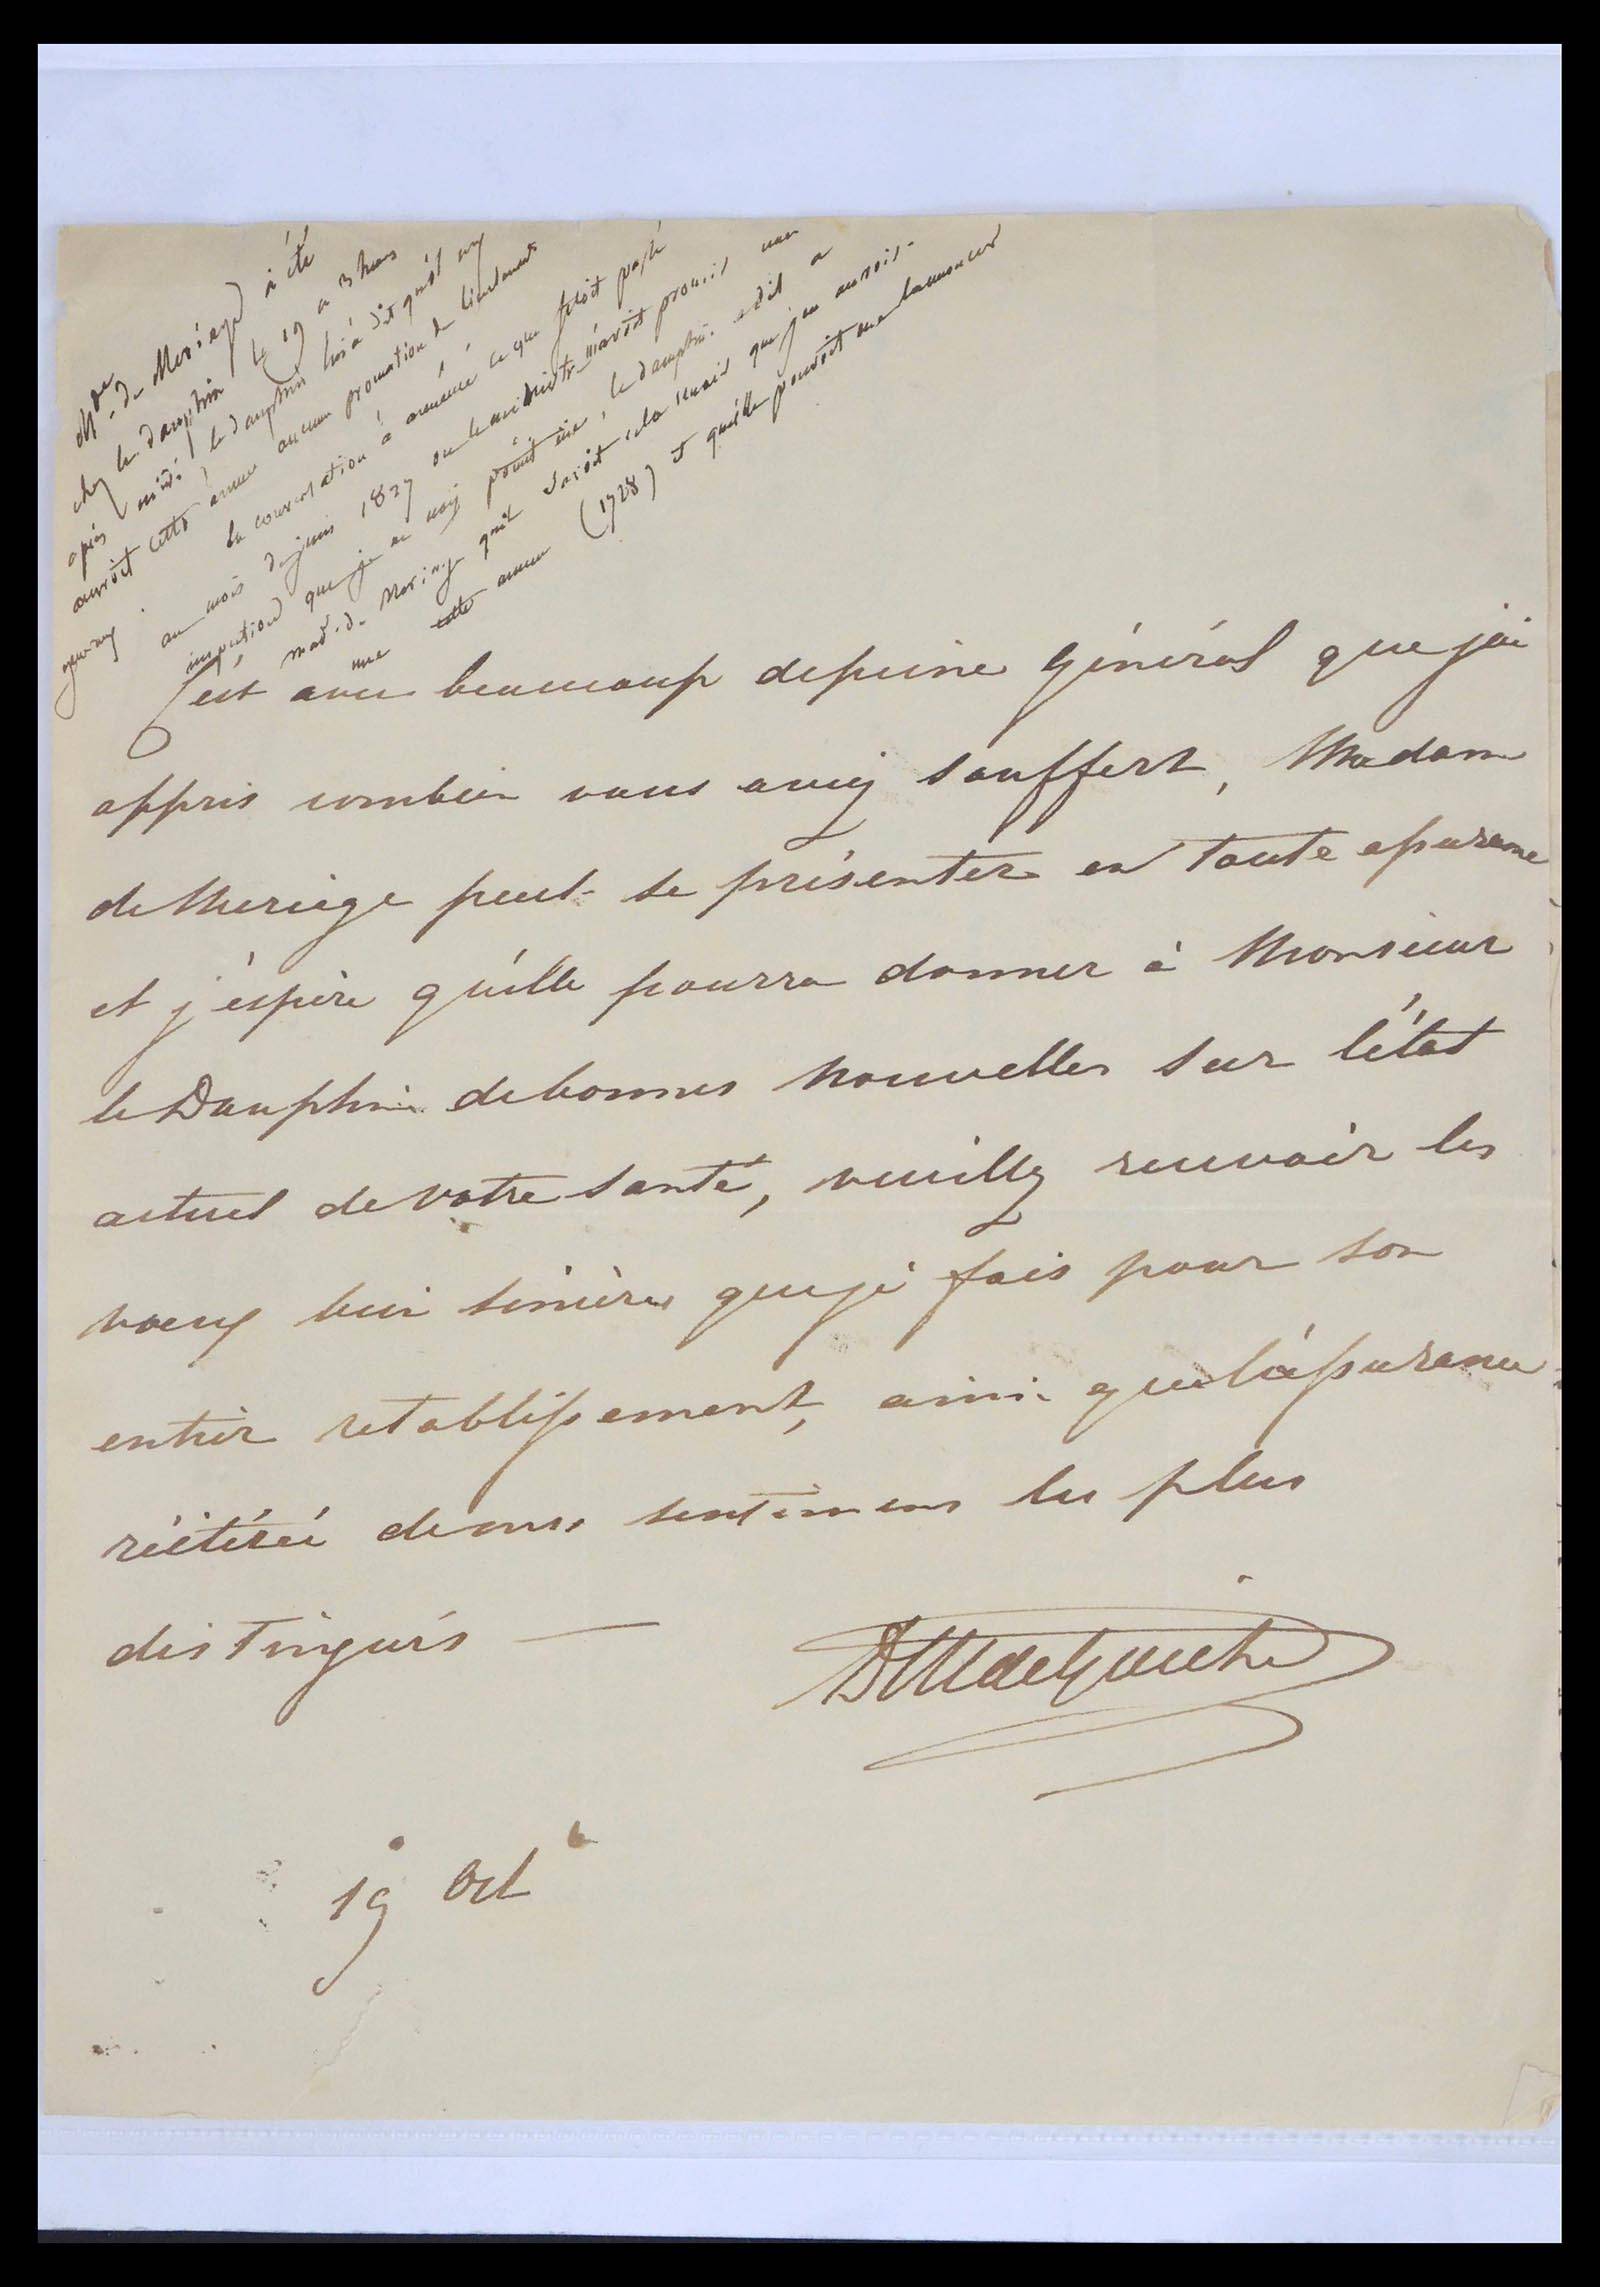 Mde de Meriage a été
chez le dauphin le 19 a 3 heures
après midi, le dauphin lui à dit qu'il ny
auroit cette année aucune promotion de lieutenants
généraux. la conversation à amené ce que s'etoit passé
au mois de juin 1827 ou le ministre m'avoit promis une
inspection que je ne eus point eue, le dauphin edit a
mad. de Meriage qu'il savoit cela mais que j'en aurois
une cette année (1728) et qu'elle pouvoit me l'annoncer
C'est avec beaucoup depeine Général que jai
appris combien vous aviez souffert, Madame
de Meriage peut se présenter en toute assurance
et j'éspère qu'elle pourra donner à Monsieur
le Dauphin debonnes nouvelles sur l'état
actuel de votre santé, veuillez recevoir les
voeux bien sincères queje fais pour son
entier retablissement, ainsi que l'assurance
réiterée demes sentimens les plus
distingués —
DUC de Guiche
19 Octb